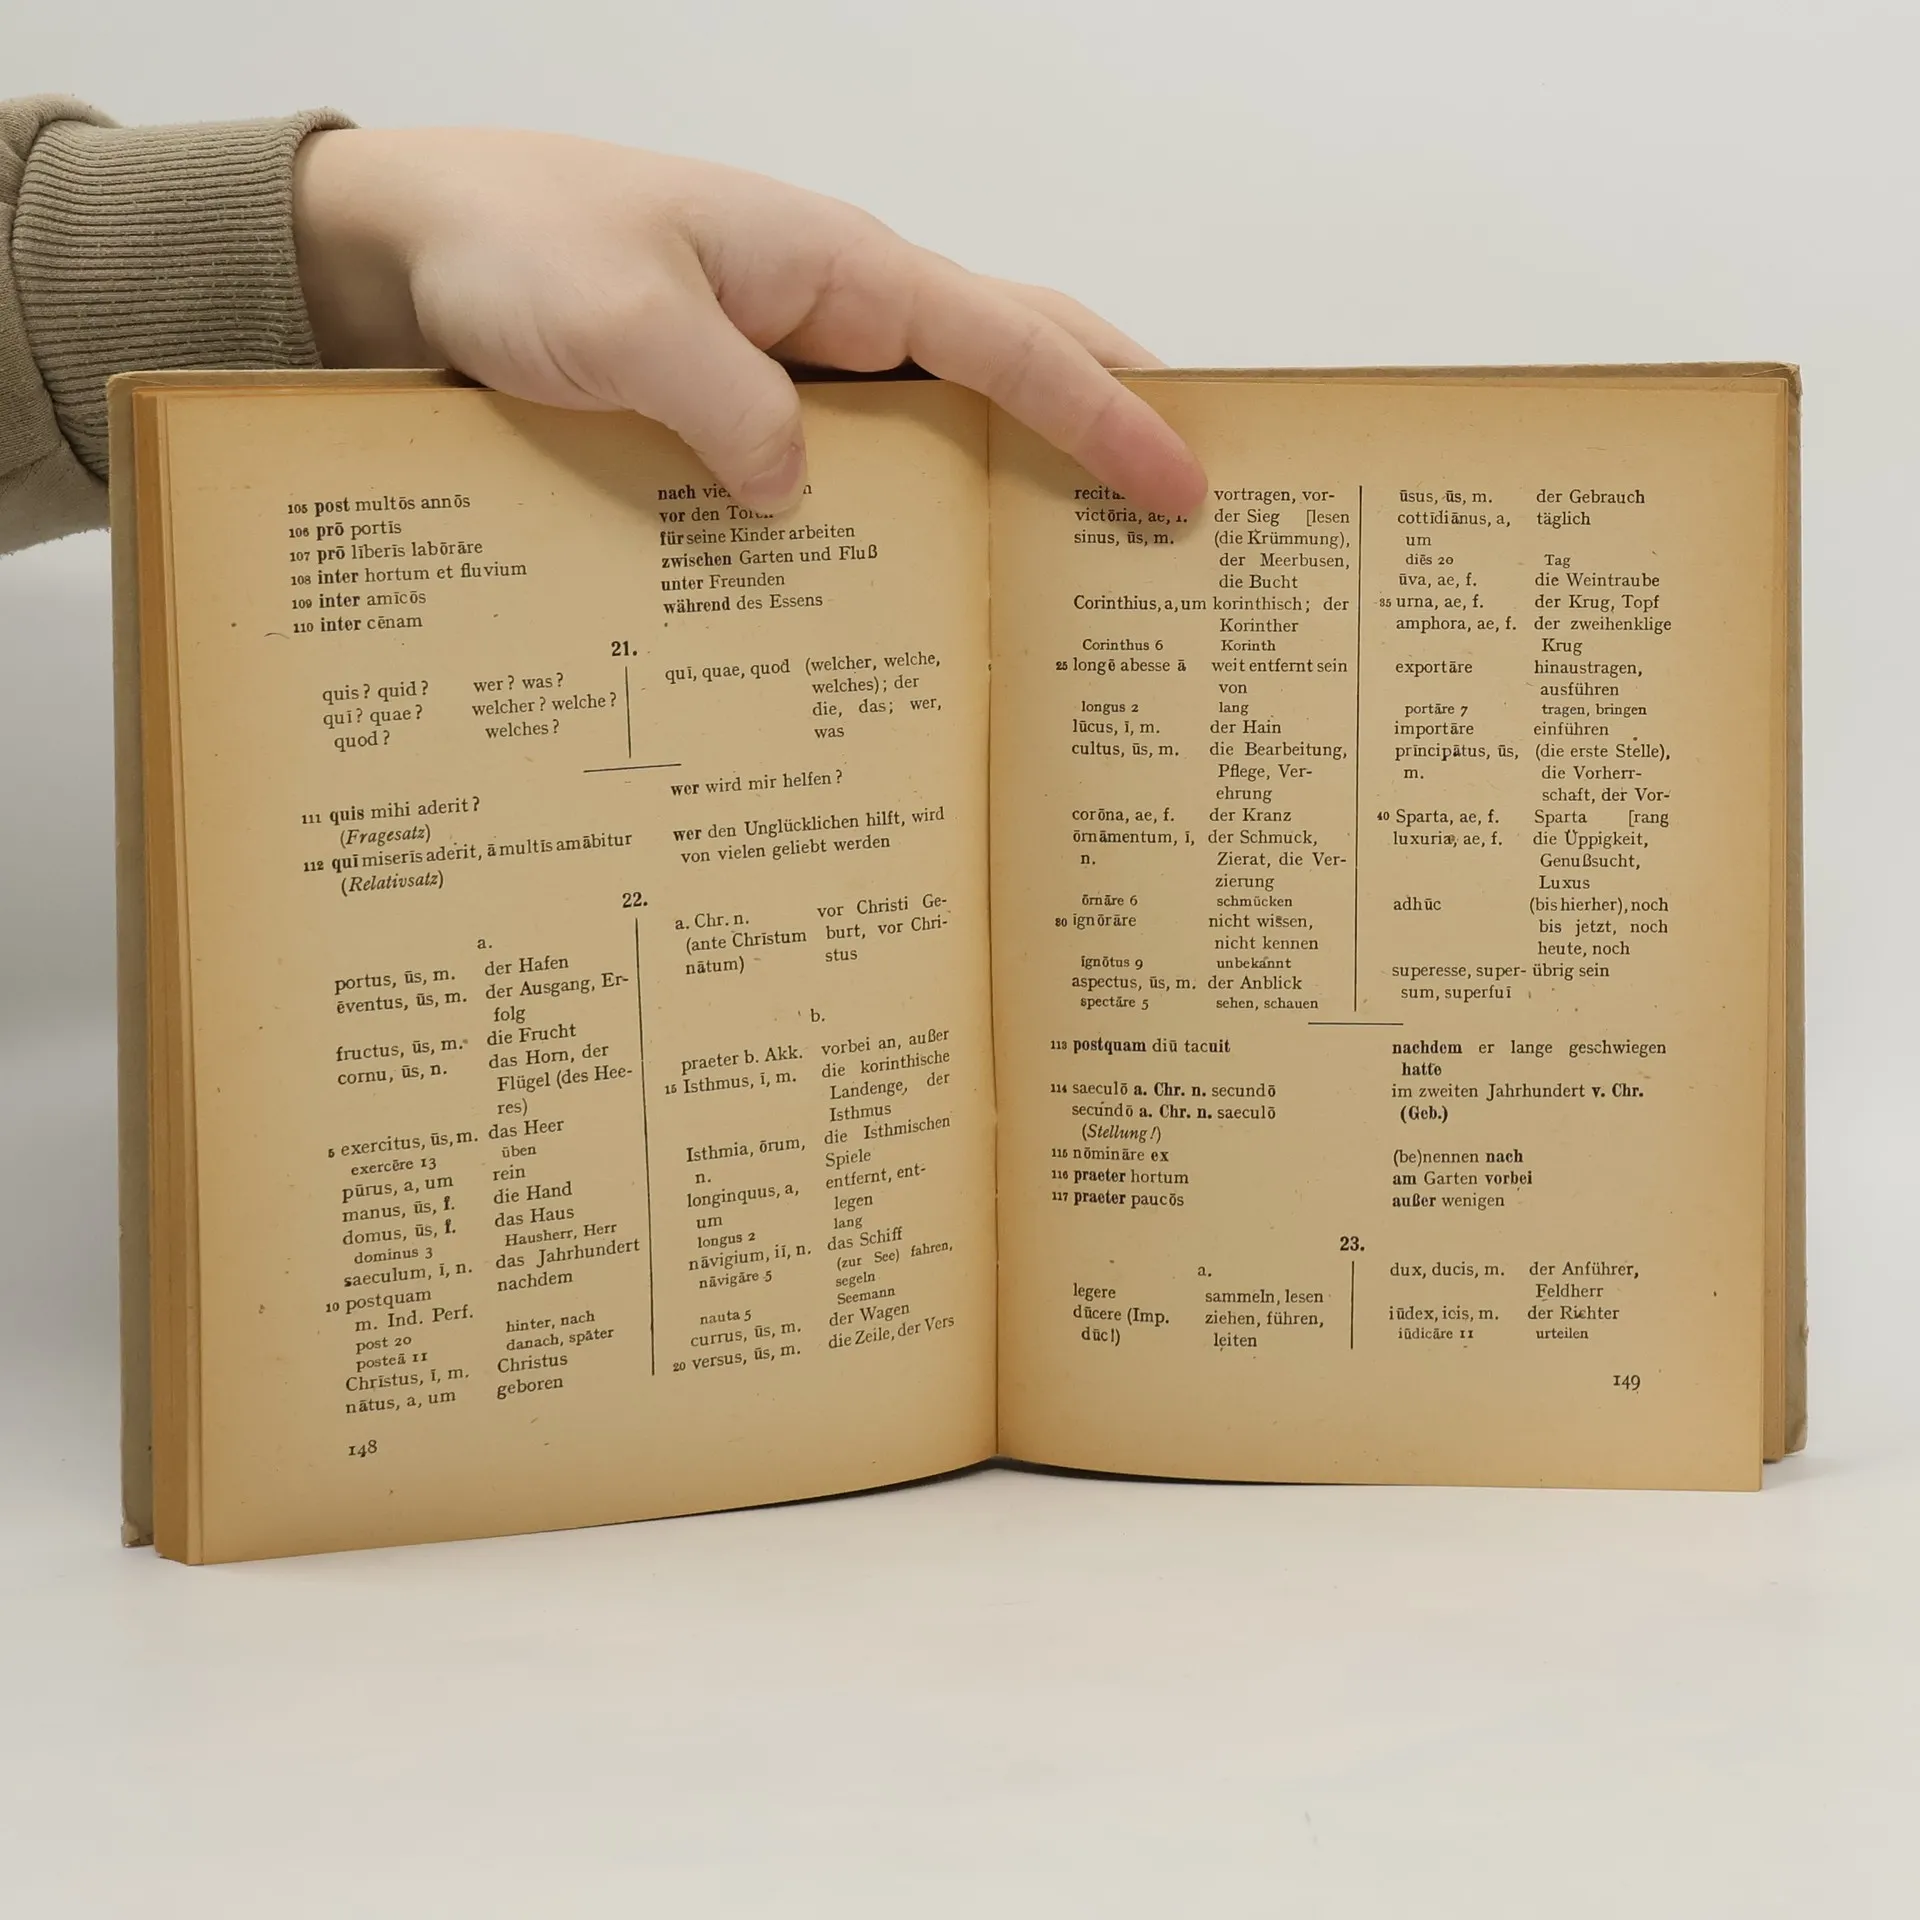 105 post multōs annōs
106 prō portīs
107 prō līberīs labōrāre
108 inter hortum et fluvium
109 inter amīcōs
110 inter cēnam
nach
vor den
für seine Kinder arbeiten
zwischen Garten und Fluß
unter Freunden
während des Essens
21.
quis? quid? wer? was?
quī? quae? welcher? welche?
quod? welches?
quī, quae, quod (welcher, welche,
welches); der
die, das; wer,
was
111 quis mihi aderit?
(Fragesatz)
112 quī miserīs aderit, ā multīs amābitur
(Relativsatz)
wer wird mir helfen?
wer den Unglücklichen hilft, wird
von vielen geliebt werden
22.
a.
portus, ūs, m. der Hafen
ēventus, ūs, m. der Ausgang, Er-
folg
fructus, ūs, m. die Frucht
cornu, ūs, n. das Horn, der
Flügel (des Hee-
res)
5 exercitus, ūs, m. das Heer
exercēre 13 üben
pūrus, a, um rein
manus, ūs, f. die Hand
domus, ūs, f. das Haus
dominus 3 Hausherr, Herr
saeculum, ī, n. das Jahrhundert
10 postquam nachdem
m. Ind. Perf.
post 20 hinter, nach
posteā 11 danach, später
Chrīstus, ī, m. Christus
nātus, a, um geboren
a. Chr. n. vor Christi Ge-
(ante Chrīstum burt, vor Chri-
nātum) stus
b.
praeter b. Akk. vorbei an, außer
15 Isthmus, ī, m. die korinthische
Landenge, der
Isthmus
Isthmia, ōrum, die Isthmischen
n. Spiele
longinquus, a, entfernt, ent-
um legen
longus 2 lang
nāvigium, iī, n. das Schiff
nāvigāre 5 (zur See) fahren,
segeln
nauta 5 Seemann
currus, ūs, m. der Wagen
20 versus, ūs, m. die Zeile, der Vers
148
vortragen, vor-
victōria, ae, f. der Sieg [lesen
sinus, ūs, m. (die Krümmung),
der Meerbusen,
die Bucht
Corinthius, a, um korinthisch; der
Korinther
Corinthus 6 Korinth
25 longē abesse ā weit entfernt sein
von
longus 2 lang
lūcus, ī, m. der Hain
cultus, ūs, m. die Bearbeitung,
Pflege, Ver-
ehrung
corōna, ae, f. der Kranz
ōrnāmentum, ī, der Schmuck,
n. Zierat, die Ver-
zierung
ōrnāre 6 schmücken
30 ignōrāre nicht wissen,
nicht kennen
ignōtus 9 unbekannt
aspectus, ūs, m. der Anblick
spectāre 5 sehen, schauen
ūsus, ūs, m. der Gebrauch
cottīdiānus, a, täglich
um
diēs 20 Tag
ūva, ae, f. die Weintraube
35 urna, ae, f. der Krug, Topf
amphora, ae, f. der zweihenklige
Krug
exportāre hinaustragen,
ausführen
portāre 7 tragen, bringen
importāre einführen
prīncipātus, ūs, (die erste Stelle),
m. die Vorherr-
schaft, der Vor-
40 Sparta, ae, f. Sparta [rang
luxuria, ae, f. die Üppigkeit,
Genußsucht,
Luxus
adhūc (bis hierher), noch
bis jetzt, noch
heute, noch
superesse, super- übrig sein
sum, superfuī
113 postquam diū tacuit
114 saeculō a. Chr. n. secundō
secundō a. Chr. n. saeculō
(Stellung!)
115 nōmināre ex
116 praeter hortum
117 praeter paucōs
nachdem er lange geschwiegen
hatte
im zweiten Jahrhundert v. Chr.
(Geb.)
(be)nennen nach
am Garten vorbei
außer wenigen
23.
a.
legere sammeln, lesen
dūcere (Imp. ziehen, führen,
dūc!) leiten
dux, ducis, m. der Anführer,
Feldherr
iūdex, icis, m. der Richter
iūdicāre 11 urteilen
149